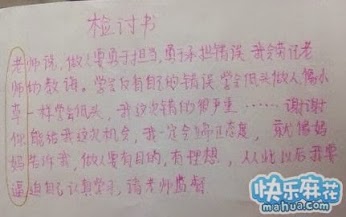 检讨书
老师说，做人要勇于担当，勇于承担错误，我会牢记老
师的教诲。学会反省自己的错误，学会低头做人，像小
草一样学会低头，我这次错的很严重……谢谢
你能给我这次机会，我一定会端正态度，就像妈
妈告诉我，做人要有目的，有理想，从此以后我要
逼迫自己认真学习，请老师监督
快乐麻花
mahua.com